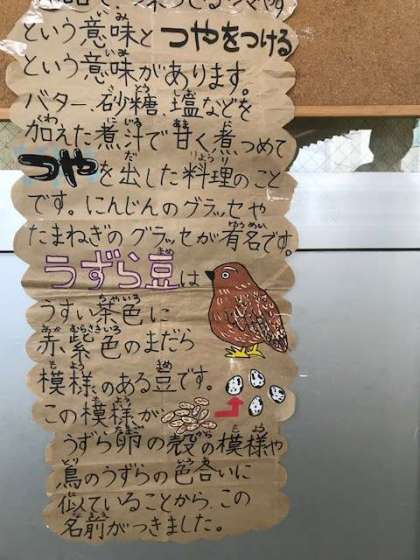 という意味とつやをつける
という意味があります。
バター、砂糖、塩などを
加えた煮汁で甘く煮つめて
つやを出した料理のこと
です。にんじんのグラッセや
たまねぎのグラッセが有名です。
うずら豆は
うすい茶色に
赤、紫色のまだら
模様のある豆です。
この模様が
うずら卵の殻の模様や
鳥のうずらの色合いに
似ていることから、この
名前がつきました。